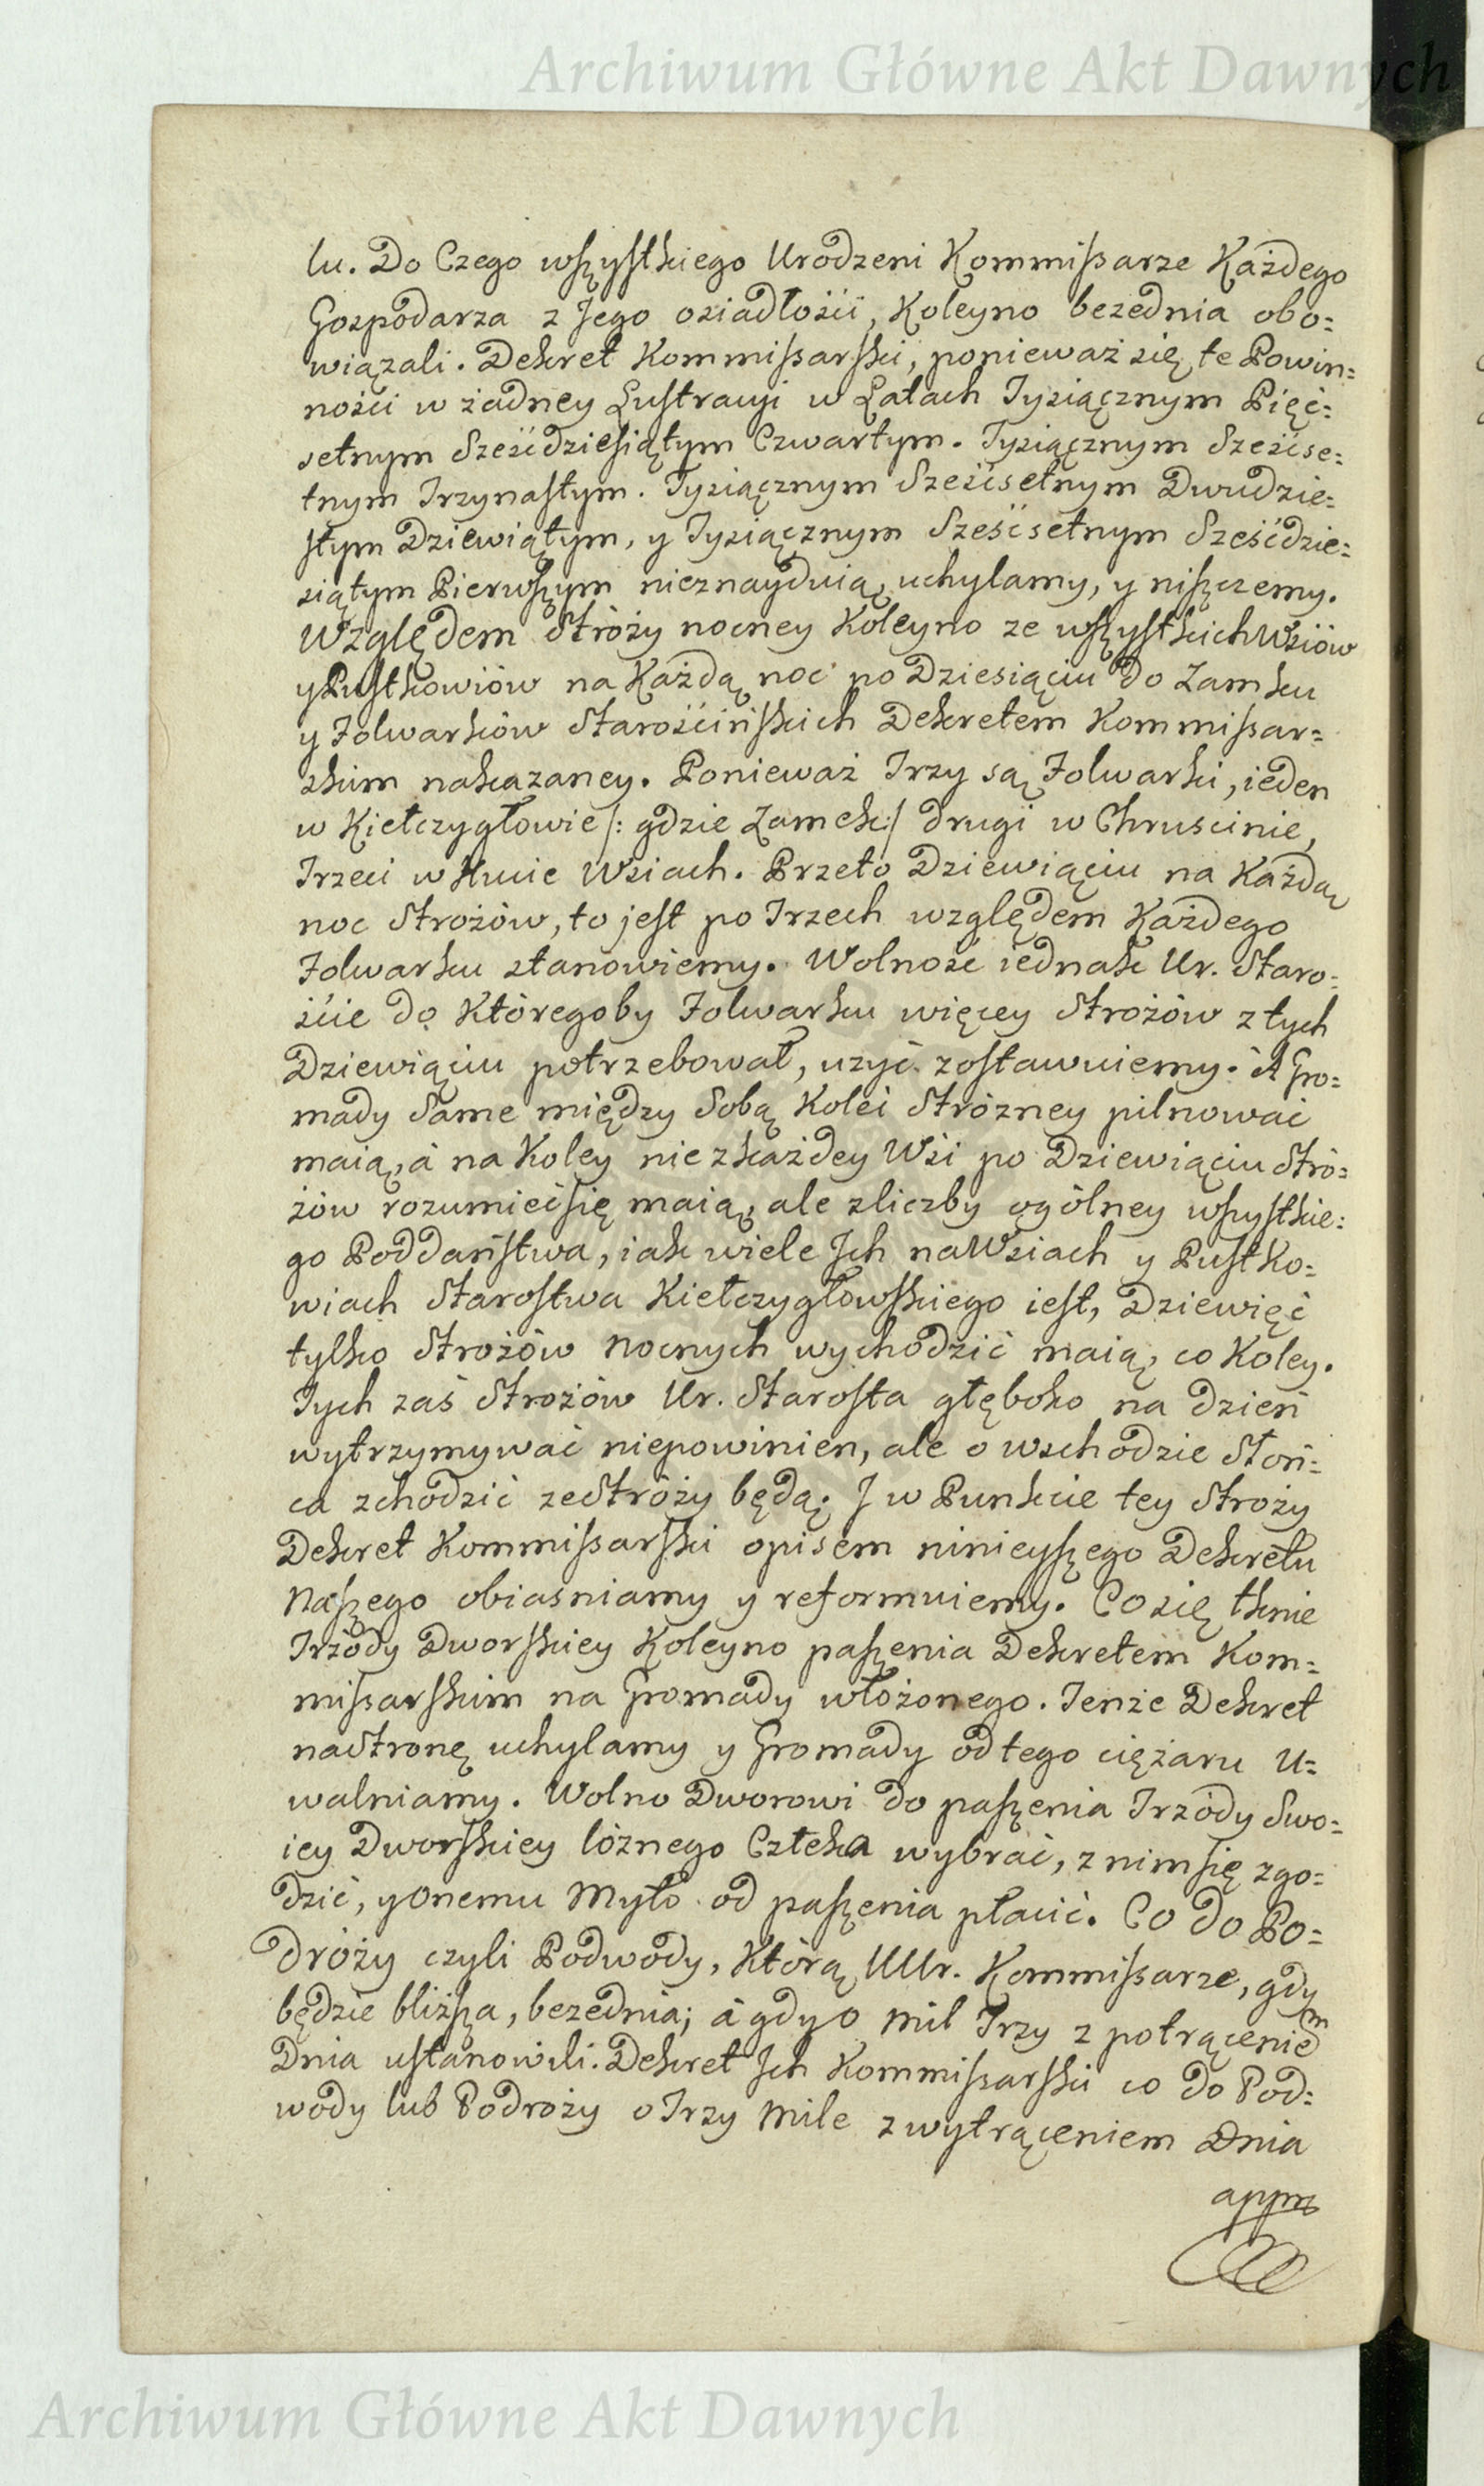 Archiwum Główne Akt Dawnych
lu. Do Czego wszystkiego Urodzeni Kommissarze Każdego
Gospodarza z Jego osiadłości, Koleyno bezednia obo=
wiązali. Dekret Kommissarski, ponieważ się te Powin=
ności w żadney Lustracyi w Latach Tysiącznym Pięć=
setnym Sześćdziesiątym Czwartym. Tysiącznym Sześćse=
tnym Trzynastym. Tysiącznym Sześćsetnym Dwudzie=
stym Dziewiątym, y Tysiącznym Sześćsetnym Sześćdzie=
siątym Pierwszym nieznayduią, uchylamy, y niszczemy.
Względem Stróży nocney Koleyno ze wszystkich Wsiów
y Pustkowiów na Każdą noc po Dziesiąciu do Zamku
y Folwarków Starościńskich Dekretem Kommissar=
skim nakazaney. Ponieważ Trzy są Folwarki, ieden
w Kiełczygłowie /: gdzie Zamek :/ drugi w Chruscinie,
Trzeci w Hucie Wsiach. Przeto Dziewiąciu na Każdą
noc Strożów, to jest po Trzech względem Każdego
Folwarku stanowiemy. Wolność iednak Ur. Staro=
ście do Któregoby Folwarku więcey Strożów z tych
Dziewiąciu potrzebował, uzyć zostawuiemy. A Gro=
mady Same między Sobą Kolei Stróżney pilnować
maią, à na Koley nie z każdey Wsi po Dziewiąciu Stró=
żów rozumieć się maią, ale z liczby ogólney wszystkie=
go Poddaństwa, iak wiele Ich na Wsiach y Pustko=
wiach Starostwa Kiełczygłowskiego iest, Dziewięć
tylko Strożów nocnych wychodzić maią, co Koley.
Tych zaś Strożów Ur. Starosta głęboko na Dzień
wytrzymywać niepowinien, ale o wschodzie Słoń=
ca zchodzić ze Stróży będą. I w Punkcie tey Stroży
Dekret Kommissarski opisem ninieyszego Dekretu
Naszego obiasniamy y reformuiemy. Co się tknie
Trzody Dworskiey Koleyno paszenia Dekretem Kom=
missarskim na Gromady włożonego. Tenże Dekret
na Stronę uchylamy y Gromady od tego ciężaru U=
walniamy. Wolno Dworowi do paszenia Trzody Swo=
iey Dworskiey lóżnego Człeka wybrać, z nim się zgo=
dzić, y onemu Myto od paszenia płacić. Co do Po=
dróży czyli Podwody, Którą UUr. Kommissarze, gdy
będzie bliższa, bezednia; à gdy o mil Trzy z potrąceniem
Dnia ustanowili. Dekret Ich Kommissarski co do Pod=
wody lub Podroży o Trzy Mile z wytrąceniem Dnia
appro
Archiwum Główne Akt Dawnych